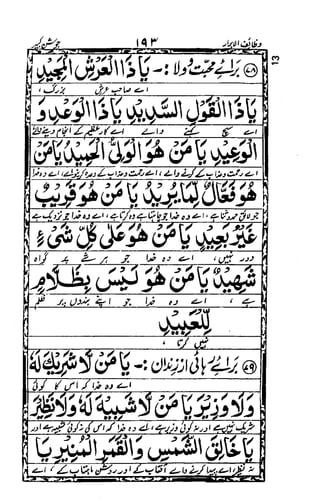 وظائف الابرار ١٩٣ جوشن کبیر
13
٧٨ برائے محبت و ولا:۔ يَا ذَا الْعَرْشِ الْمَجِيْدِ
اے صاحب عرش بزرگ،
يَا ذَا الْقَوْلِ السَّدِيْدِ يَا ذَا الْوَعْدِ وَ
اے سچ کہنے والے اے
الْوَعِيْدِ يَا مَنْ هُوَ الْوَلِىُّ الْحَمِيْدُ يَا مَنْ
هُوَ فَعَّالٌ لِمَا يُرِيْدُ يَا مَنْ هُوَ قَرِيْبٌ
جو لائق حمد و ثنا ہے، اے وہ خدا جو چاہتا ہے وہ کرتا ہے، اے وہ خدا جو نزدیک ہے
غَيْرُ بَعِيْدٍ يَا مَنْ هُوَ عَلٰى كُلِّ شَىْءٍ
دور نہیں، اے وہ خدا جو ہر شے پر گواہ
شَهِيْدٌ يَا مَنْ هُوَ لَيْسَ بِظَلَّامٍ
ہے، اے وہ خدا جو اپنے بندوں پر ظلم
لِلْعَبِيْدِ
نہیں کرتا،
٧٩ برائے رہائی از زندان:۔ يَا مَنْ لَا شَرِيْكَ لَهٗ
اے وہ خدا کہ اس کا کوئی
وَلَا وَزِيْرَ يَا مَنْ لَا شَبِيْهَ لَهٗ وَلَا نَظِيْرَ
شریک نہیں ہے اور نہ کوئی وزیر ہے، اے وہ خدا کہ اس کی نہ کوئی شبیہہ ہے اور
يَا خَالِقَ الشَّمْسِ وَالْقَمَرِ الْمُنِيْرِ يَا
نہ نظیر، اے پیدا کرنے والے آفتاب کے اور روشن ماہتاب کے، اے